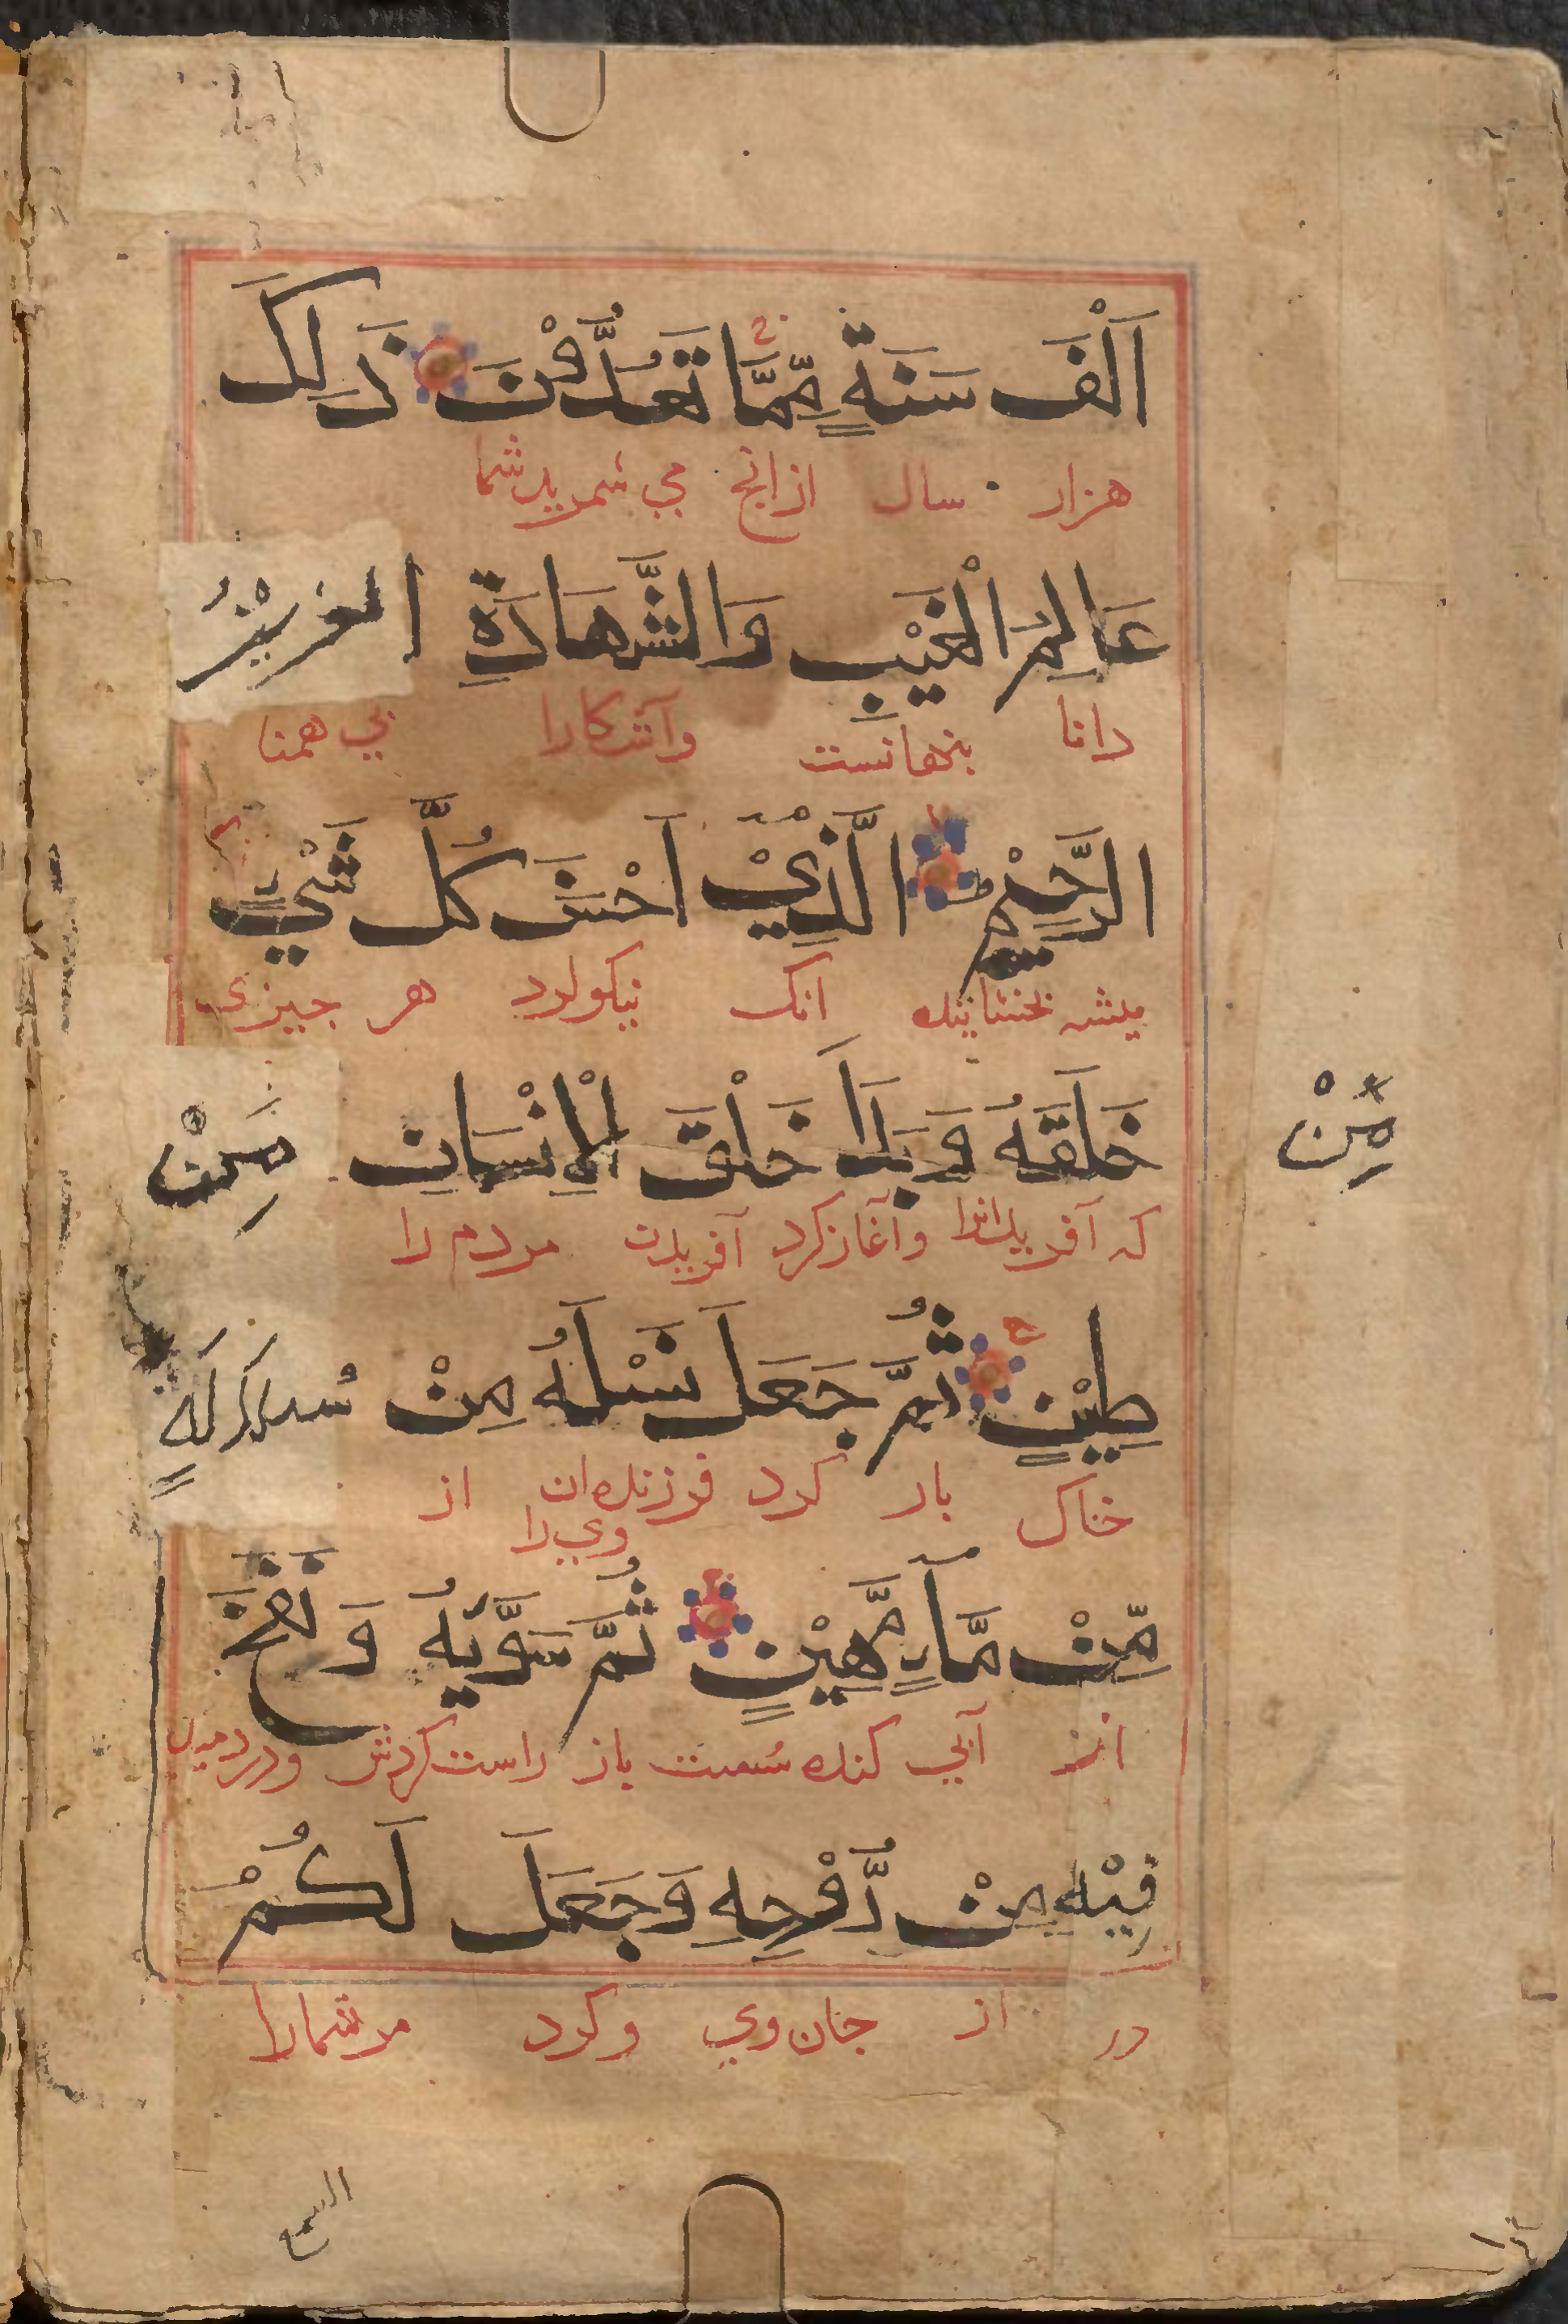 اَلْفَ سَنَةٍ مِّمَّا تَعُدُّوْنَ ذَلِكَ
هزار سال از انج مي شمريد شما
عَالِمُ الْغَيْبِ وَالشَّهَادَةِ العزيْزُ
دانا بنهانست وآشكارا بي همتا
الرَّحِيْمُ الَّذِيْ اَحْسَنَ كُلَّ شَيْءٍ
بخشاينده انك نيكو كرد هر جيزى
خَلَقَهُ وَبَدَاَ خَلْقَ الْاِنْسَانِ مِنْ
مِّنْ
كه آفريد انرا وآغاز كرد آفريدن مردم را
طِيْنٍ ثُمَّ جَعَلَ نَسْلَهُ مِنْ سُلالَةٍ
خاك باز كرد فرزندان وي را از
مِّنْ مَّآءٍ مَّهِيْنٍ ثُمَّ سَوَّيهُ وَنَفَخَ
از آبي كنده سُست باز راست كردش ودردميد
فِيْهِ مِنْ رُّوْحِهِ وَجَعَلَ لَكُمْ
در از جان وي وكرد مر شمارا
السمع